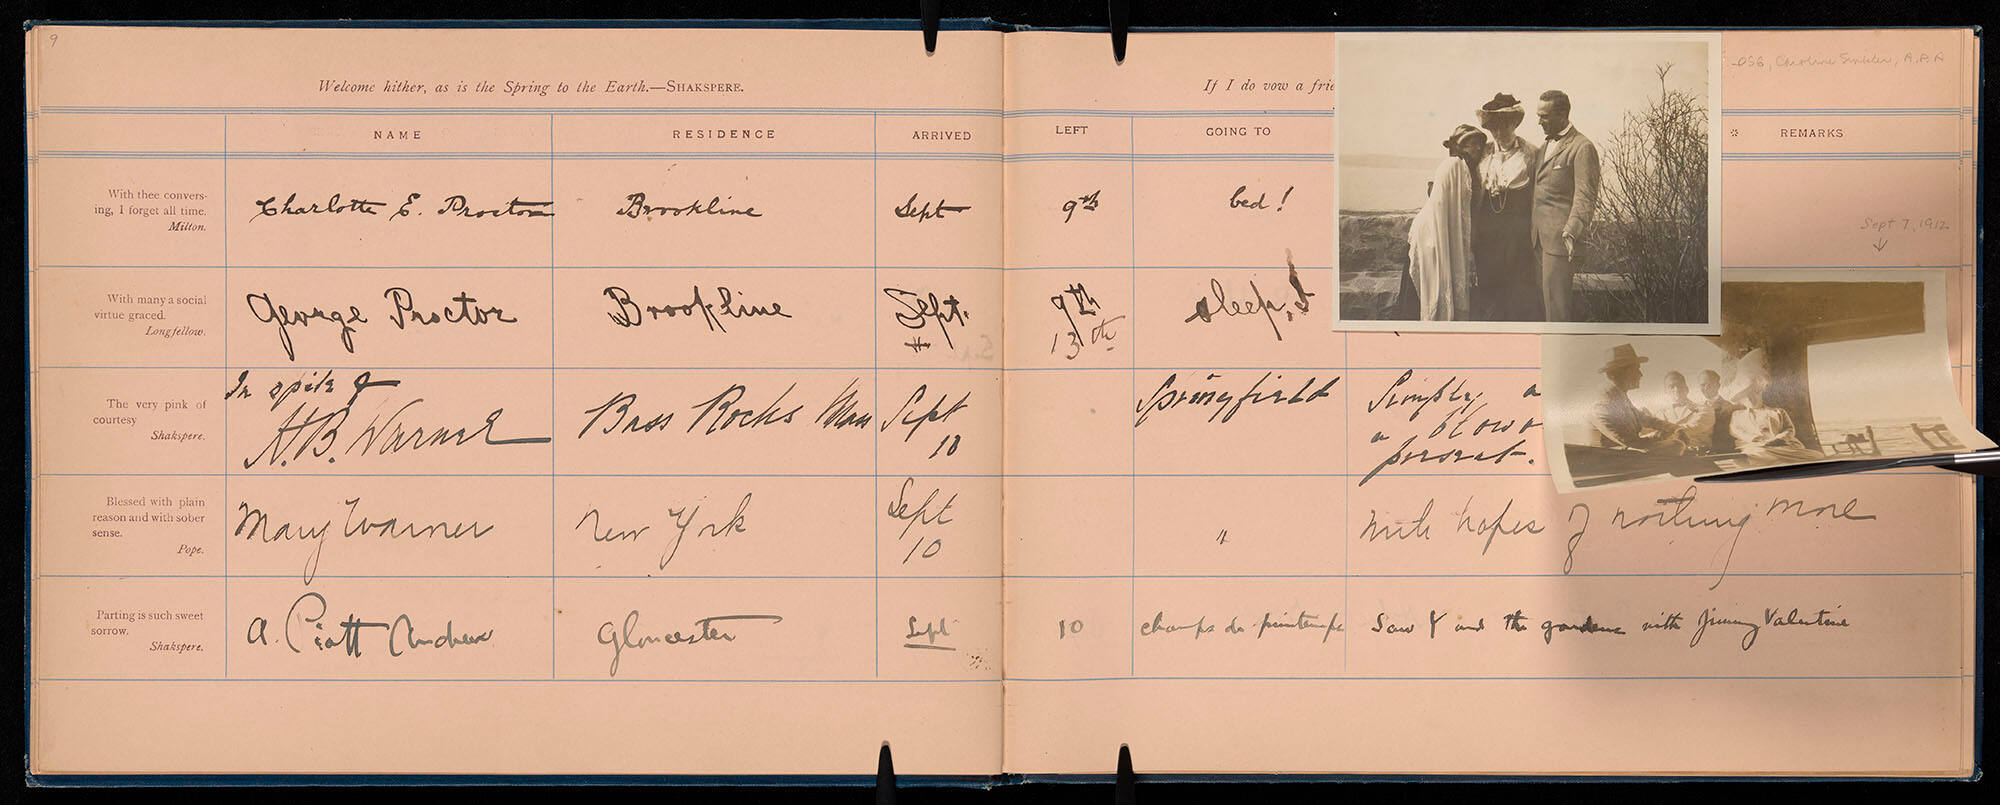 9
Welcome hither, as is the Spring to the Earth.—SHAKSPERE.
If I do vow a frie
-DSG, Caroline Sinkler, A.P.A
NAME RESIDENCE ARRIVED LEFT GOING TO REMARKS
With thee convers-
ing, I forget all time.
Milton.
Charlotte E. Proctor Brookline Sept 9th bed!
Sept 7, 1912
With many a social
virtue graced.
Longfellow.
George Proctor Brookline Sept. 9th sleep,
13th
The very pink of
courtesy
Shakspere.
In spite of
H.B. Warner Bass Rocks Mass Sept
10
Springfield
Simply a
a blow
Blessed with plain
reason and with sober
sense.
Pope.
Mary Warner New York Sept
10
" with hopes of nothing more
Parting is such sweet
sorrow.
Shakspere.
A. Piatt Andrew Gloucester Sept 10 champs du printemps Saw Y and the gardens with Jimmy Valentine